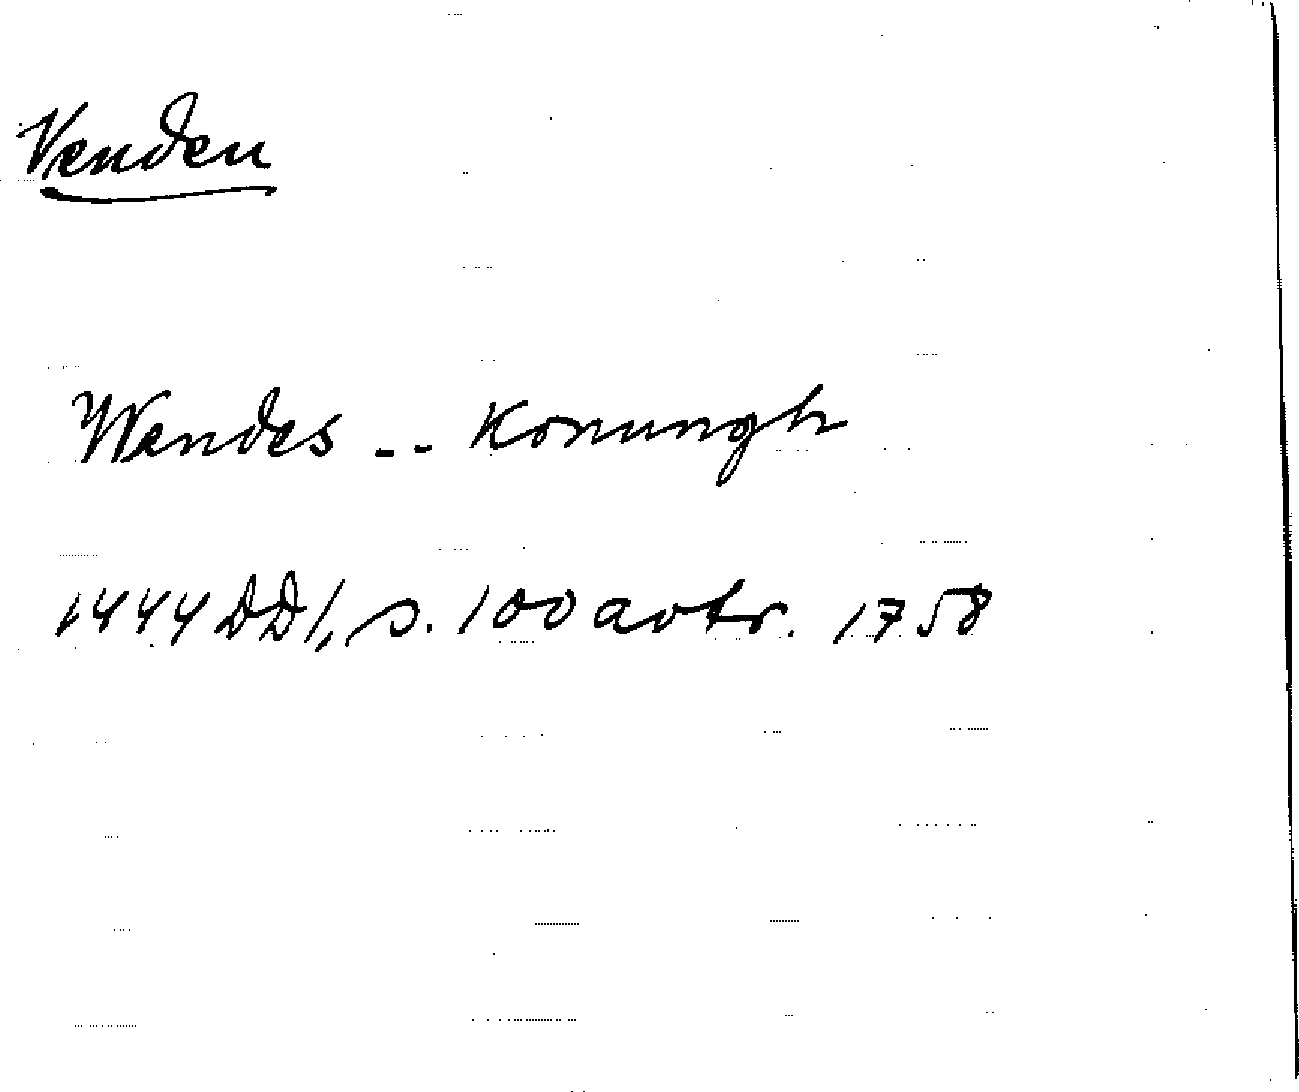 Venden
Wendes -- Konungh
1444 DD1, s. 100 avtr. 1758